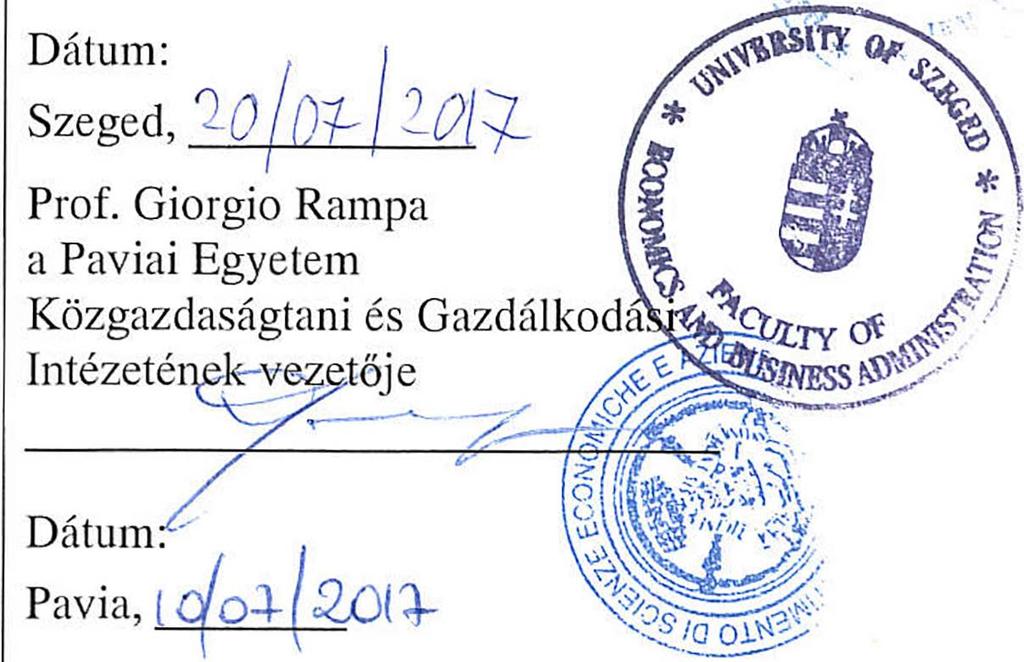 Dátum:
Szeged, 20/07/2017
Prof. Giorgio Rampa
a Paviai Egyetem
Közgazdaságtani és Gazdálkodási
Intézetének vezetője
Dátum:
Pavia, 10/07/2017
* UNIVERSITY OF SZEGED *
FACULTY OF
ECONOMICS AND BUSINESS ADMINISTRATION
TIMENTO DI SCIENZE ECONOMICHE E AZIE